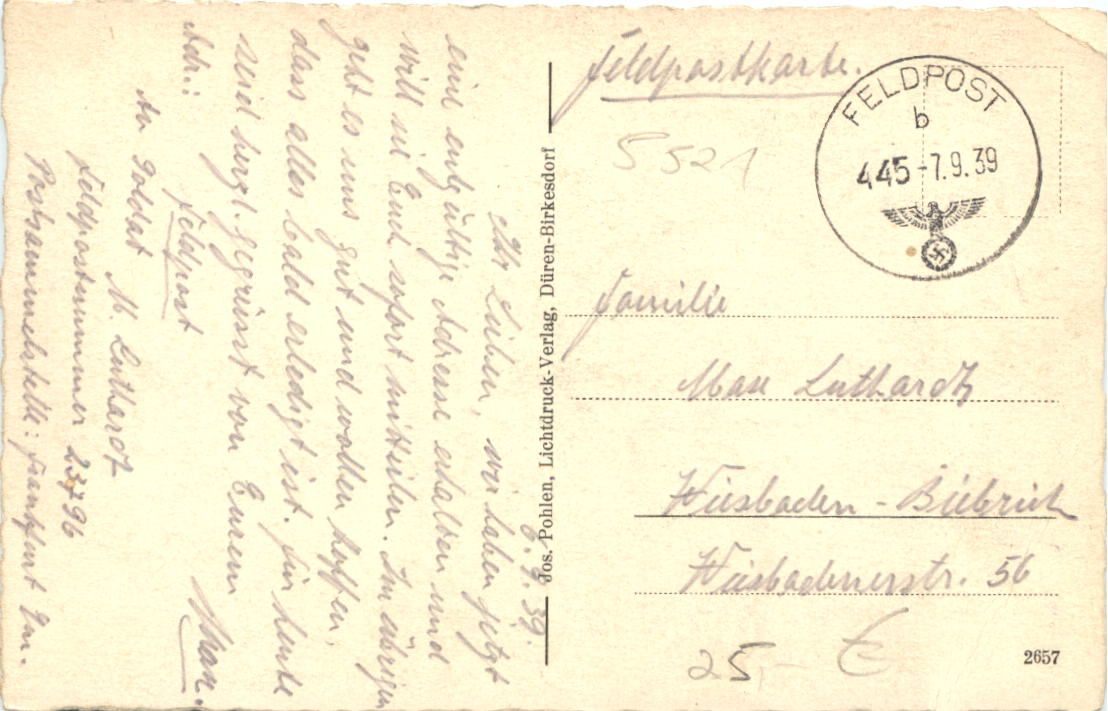 6.9.39.
Ihr Lieben, wir haben jetzt
eine entgültige Adresse erhalten und
will sie Euch sofort mitteilen. Im übrigen
geht es uns gut und wollen hoffen,
dass alles bald erledigt ist. Für heute
seid herzl. gegrüsst von Eurem
Max.
Adr.: Feldpost
An Soldat M. Luthardt
Feldpostnummer 23796
Postsammelstelle: Frankfurt Em.
Jos. Pohlen, Lichtdruck-Verlag, Düren-Birkesdorf
Feldpostkarte.
5521
FELDPOST
b
445-7.9.39
Familie
Max Luthardt
Wiesbaden-Biebrich
Wiesbadenerstr. 56
25,- €
2657